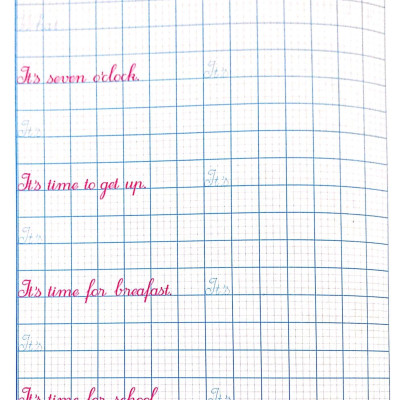 It's seven o'clock. It's
It's
It's time to get up. It's
It's
It's time for breafast. It's
It's
It's time for school It's